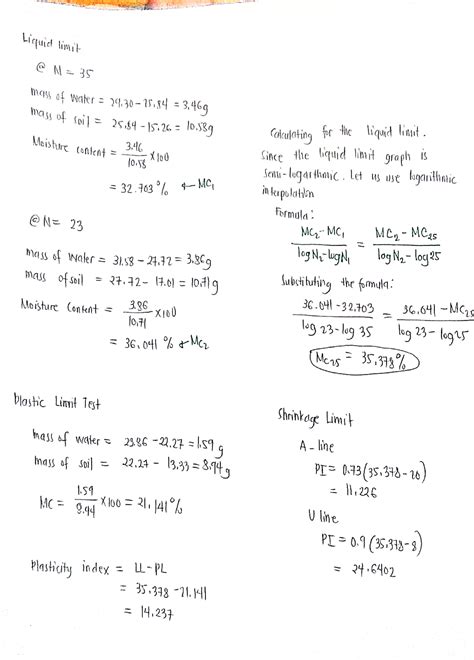 Liquid limit
@ N = 35
mass of water = 29.30 - 25.84 = 3.46g
mass of soil = 25.84 - 15.26 = 10.58g
Moisture content = 3.46/10.58 x100
= 32.703 % ← MC1
@ N = 23
mass of water = 31.58 - 27.72 = 3.86g
mass of soil = 27.72 - 17.01 = 10.71g
Moisture content = 3.86/10.71 x100
= 36.041 % ← MC2
Plastic Limit Test
mass of water = 23.86 - 22.27 = 1.59 g
mass of soil = 22.27 - 13.33 = 8.94g
MC = 1.59/8.94 x100 = 21.141%
Plasticity index = LL-PL
= 35.378 - 21.141
= 14.237
Calculating for the liquid limit.
Since the liquid limit graph is
semi-logarthmic. Let us use logarithmic
interpolation
Formula:
MC2-MC1/logN2-logN1 = MC2-MC25/logN2-log25
Substituting the formula:
36.041-32.703/log 23-log 35 = 36.041-MC25/log 23-log25
MC25 = 35.378%
Shrinkage Limit
A-line
PI = 0.73(35.378-20)
= 11.226
U line
PI = 0.9(35.378-8)
= 24.6402